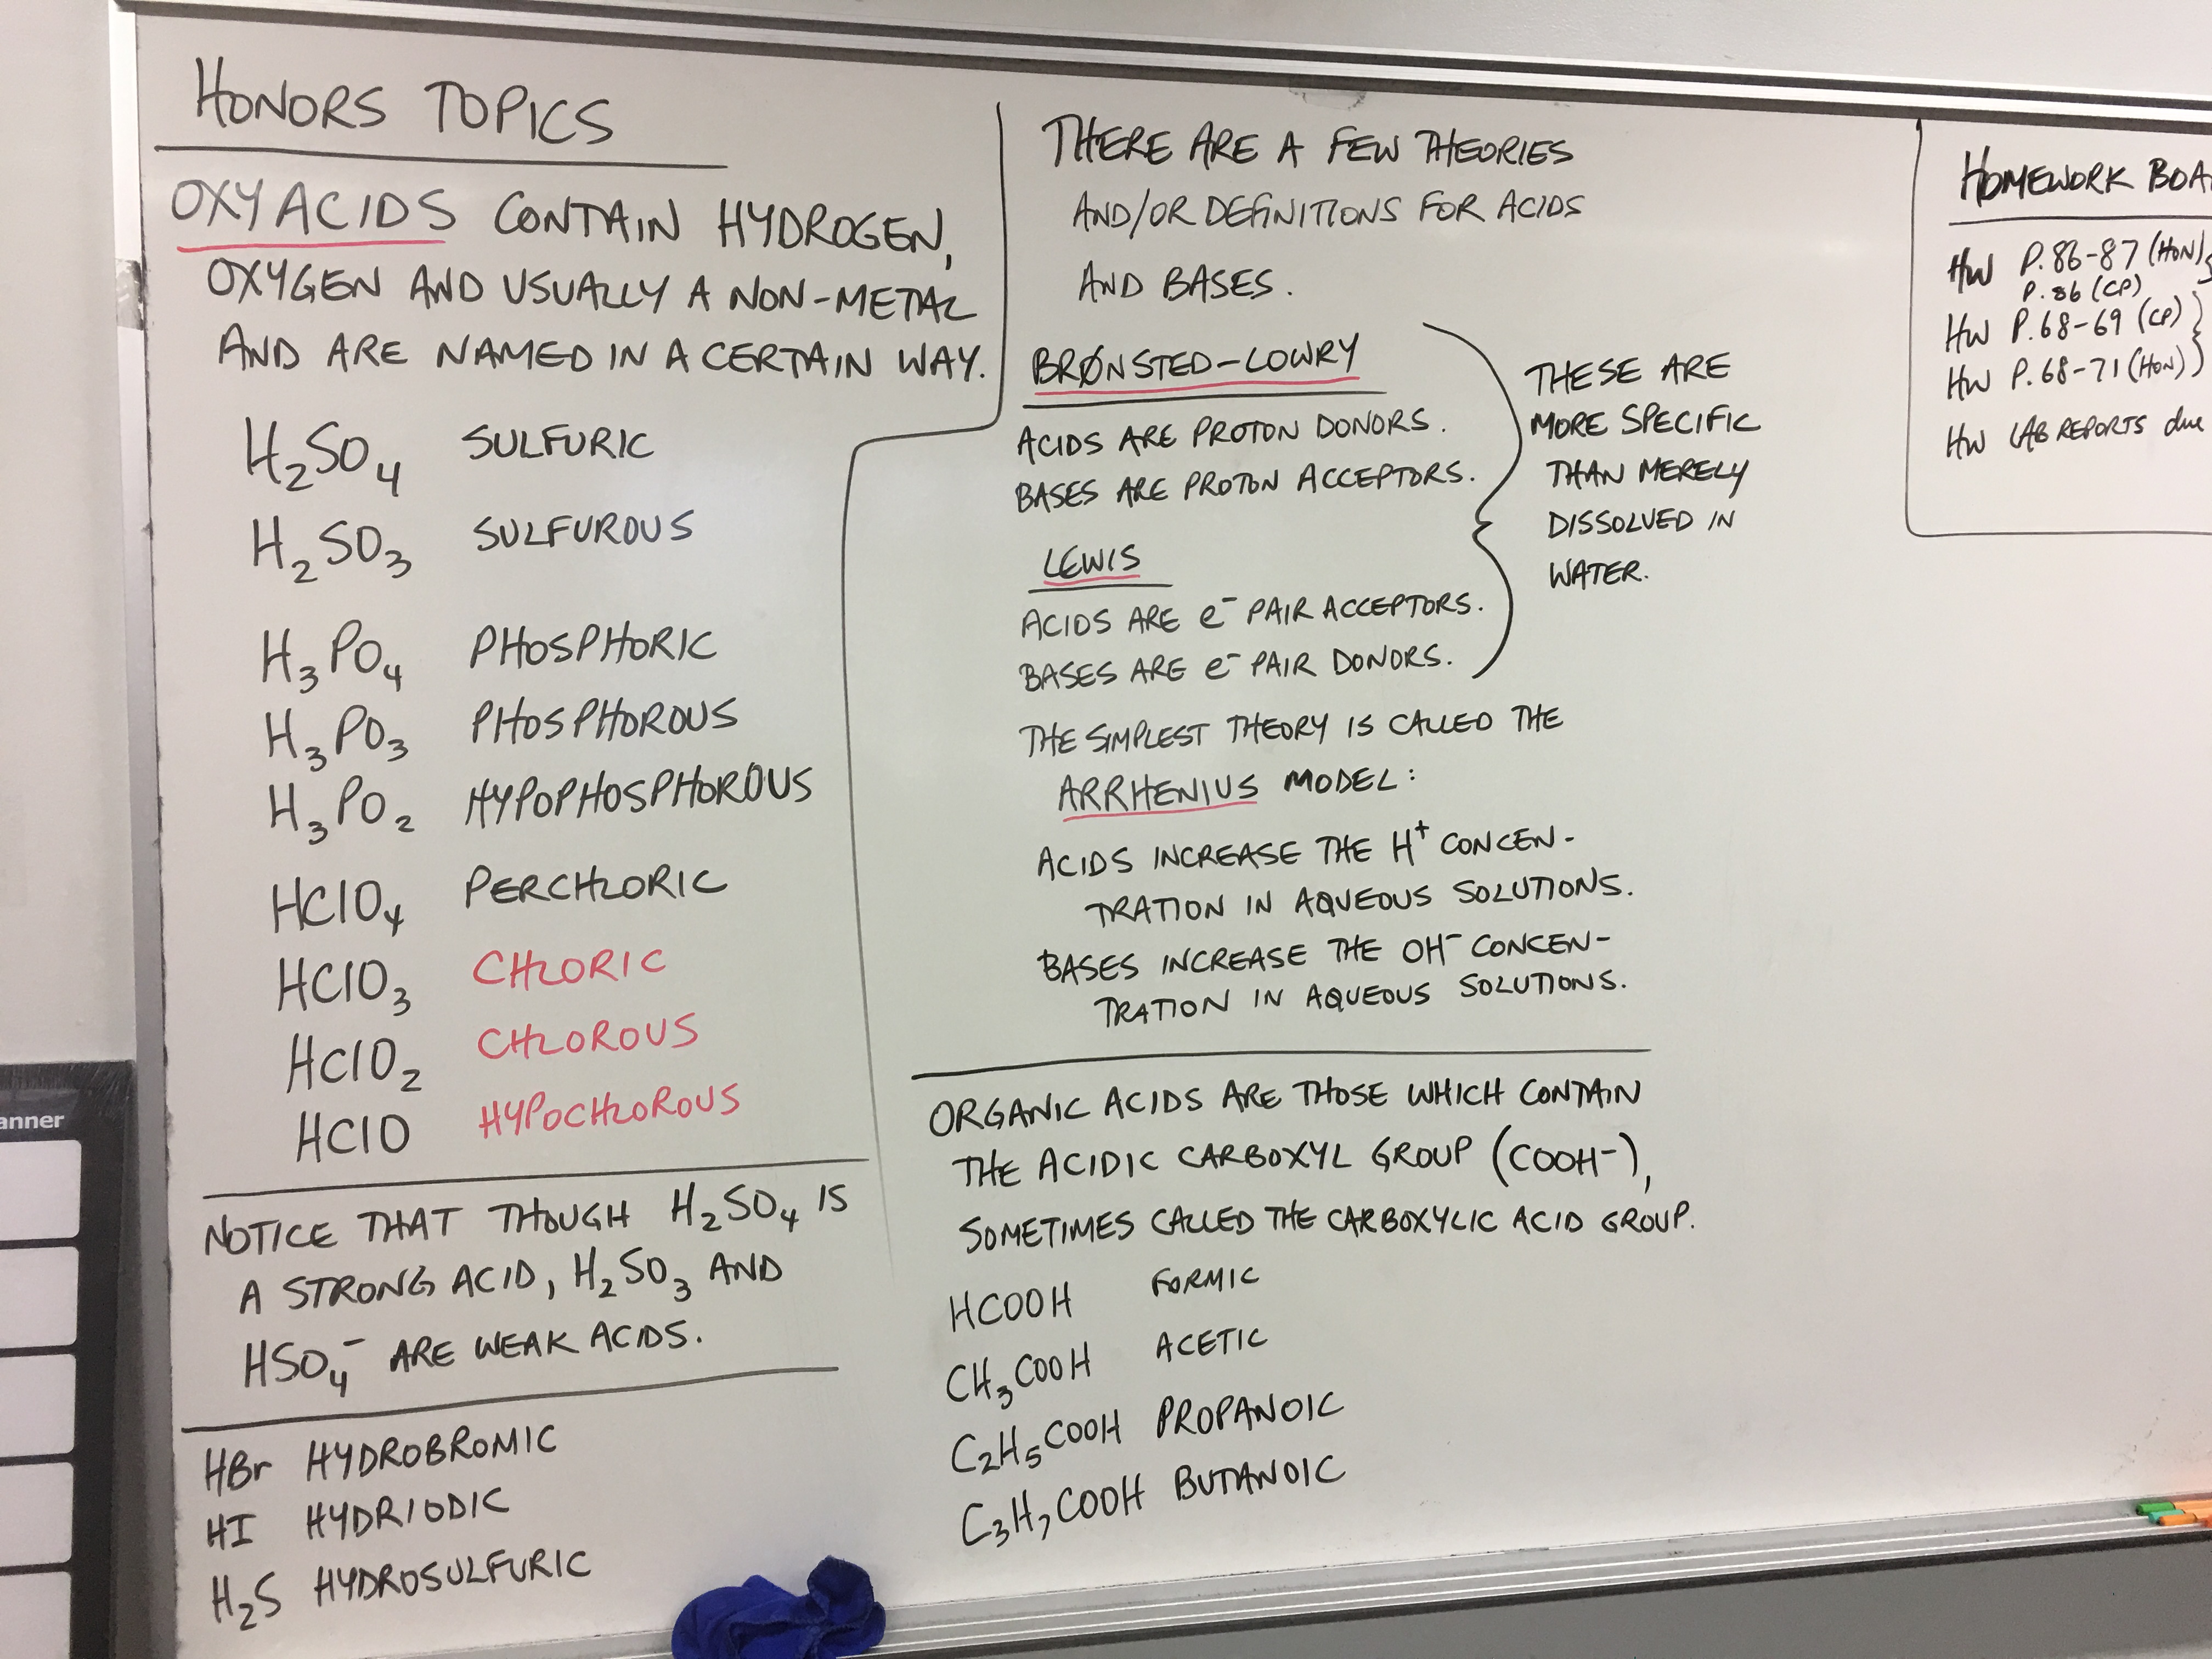 HONORS TOPICS
OXYACIDS CONTAIN HYDROGEN,
OXYGEN AND USUALLY A NON-METAL
AND ARE NAMED IN A CERTAIN WAY.
H₂SO₄ SULFURIC
H₂SO₃ SULFUROUS
H₃PO₄ PHOSPHORIC
H₃PO₃ PHOSPHOROUS
H₃PO₂ HYPOPHOSPHOROUS
HClO₄ PERCHLORIC
HClO₃ CHLORIC
HClO₂ CHLOROUS
HClO HYPOCHLOROUS
NOTICE THAT THOUGH H₂SO₄ IS
A STRONG ACID, H₂SO₃ AND
HSO₄⁻ ARE WEAK ACIDS.
HBr HYDROBROMIC
HI HYDRIODIC
H₂S HYDROSULFURIC
THERE ARE A FEW THEORIES
AND/OR DEFINITIONS FOR ACIDS
AND BASES.
BRØNSTED-LOWRY
ACIDS ARE PROTON DONORS.
BASES ARE PROTON ACCEPTORS.
LEWIS
ACIDS ARE e⁻ PAIR ACCEPTORS.
BASES ARE e⁻ PAIR DONORS.
THESE ARE
MORE SPECIFIC
THAN MERELY
DISSOLVED IN
WATER.
THE SIMPLEST THEORY IS CALLED THE
ARRHENIUS MODEL:
ACIDS INCREASE THE H⁺ CONCEN-
TRATION IN AQUEOUS SOLUTIONS.
BASES INCREASE THE OH⁻ CONCEN-
TRATION IN AQUEOUS SOLUTIONS.
ORGANIC ACIDS ARE THOSE WHICH CONTAIN
THE ACIDIC CARBOXYL GROUP (COOH⁻),
SOMETIMES CALLED THE CARBOXYLIC ACID GROUP.
HCOOH FORMIC
CH₃COOH ACETIC
C₂H₅COOH PROPANOIC
C₃H₇COOH BUTANOIC
HOMEWORK BOA
HW P.86-87 (HON)
P.86 (CP)
HW P.68-69 (CP)
HW P.68-71 (HON)
HW LAB REPORTS due
anner